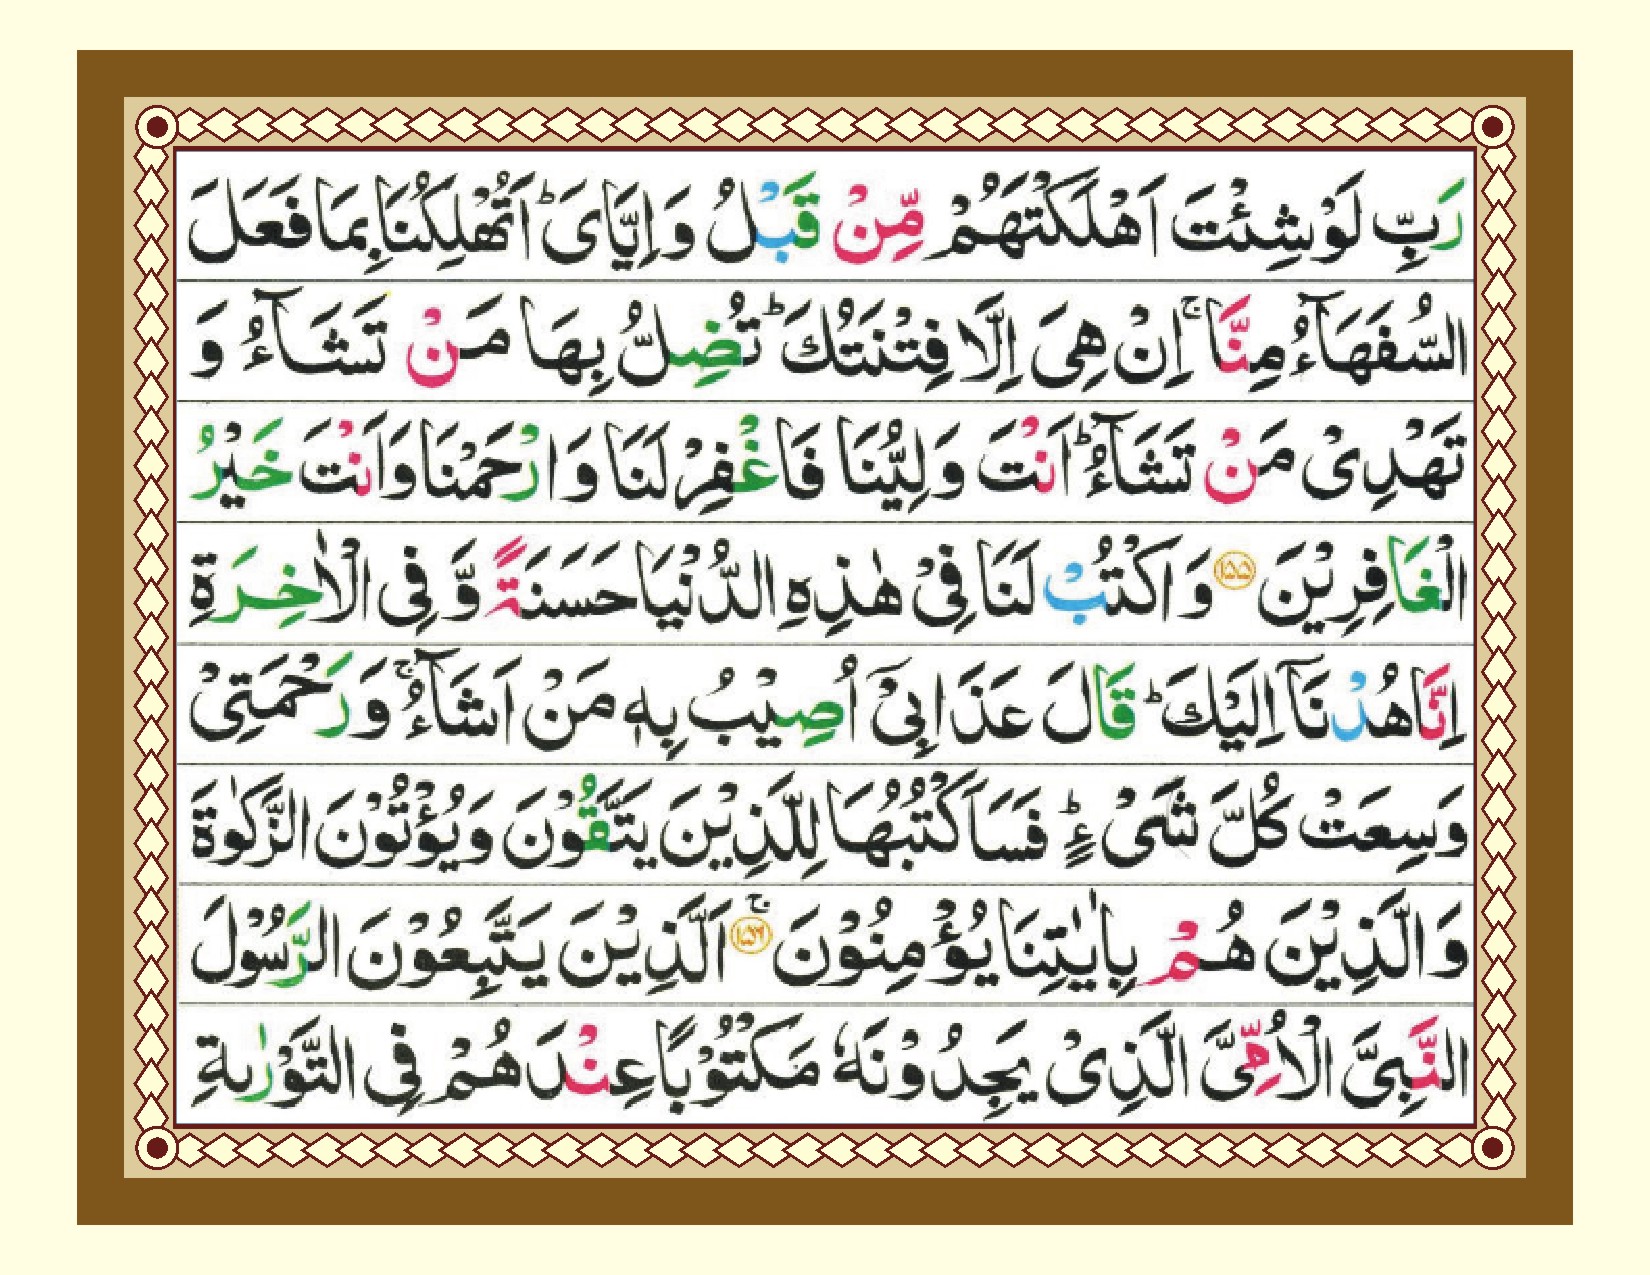 رَبِّ لَوْشِئْتَ اَهْلَكْتَهُمْ مِّنْ قَبْلُ وَاِيَّايَ ؕ اَتُهْلِكُنَابِمَافَعَلَ
السُّفَهَآءُ مِنَّا ۚ اِنْ هِىَ اِلَّا فِتْنَتُكَ ؕ تُضِلُّ بِهَا مَنْ تَشَآءُ وَ
تَهْدِىْ مَنْ تَشَآءُ ؕ اَنْتَ وَلِيُّنَا فَاغْفِرْ لَنَا وَارْحَمْنَا وَاَنْتَ خَيْرُ
الْغَافِرِيْنَ ۝۱۵۵ وَاكْتُبْ لَنَا فِىْ هٰذِهِ الدُّنْيَا حَسَنَةً وَّ فِى الْاٰخِرَةِ
اِنَّا هُدْنَآ اِلَيْكَ ؕ قَالَ عَذَابِىْٓ اُصِيْبُ بِهٖ مَنْ اَشَآءُ ۚ وَرَحْمَتِىْ
وَسِعَتْ كُلَّ شَىْءٍ ؕ فَسَاَكْتُبُهَا لِلَّذِيْنَ يَتَّقُوْنَ وَيُؤْتُوْنَ الزَّكٰوةَ
وَالَّذِيْنَ هُمْ بِاٰيٰتِنَا يُؤْمِنُوْنَ ۝۱۵۶ ۚ اَلَّذِيْنَ يَتَّبِعُوْنَ الرَّسُوْلَ
النَّبِىَّ الْاُمِّىَّ الَّذِىْ يَجِدُوْنَهٗ مَكْتُوْبًا عِنْدَهُمْ فِى التَّوْرٰىةِ